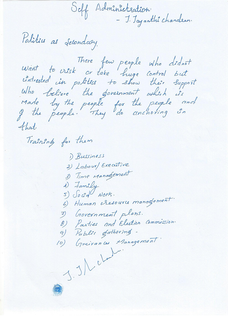 Self Administration
- J. Jayanthi chandran.
Politics as secondary
There few people who didnt
want to work or take huge control but
intrested in politics to show their support
who believe the government which is
made by the people for the people and
of the people. They do something in
that
Training for them
1) Business
2) Labour/Executive
3) Time management
4) Family
5) Social work.
6) Human resource management
7) Government plans.
8) Parties and Election commission
9) Public gathering.
10) Grievance Management.